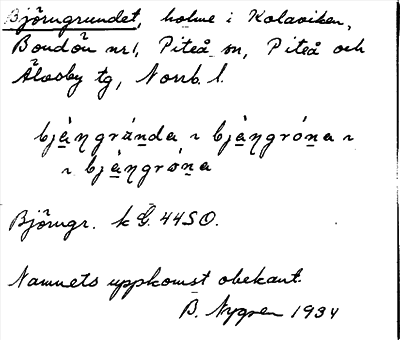 Björngrundet, holme i Kolaviken,
Bondön nr 1, Piteå sn, Piteå och
Älvsby tg, Norrb. l.
bjàŋgrànda ~ bjàŋgróna ~
~ bjàŋgròna
Björngr. k G. 44 SO.
Namnets uppkomst obekant.
B. Nygren 1934